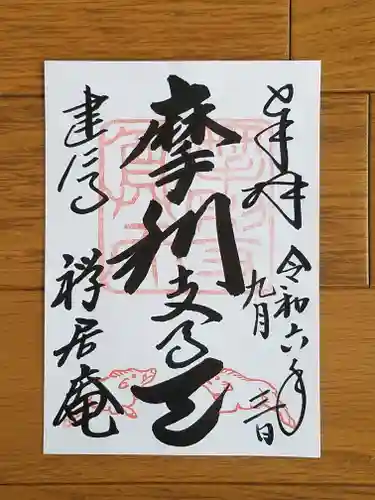 奉拝
令和六年
九月
三日
摩利支尊天
建仁寺
禅居庵